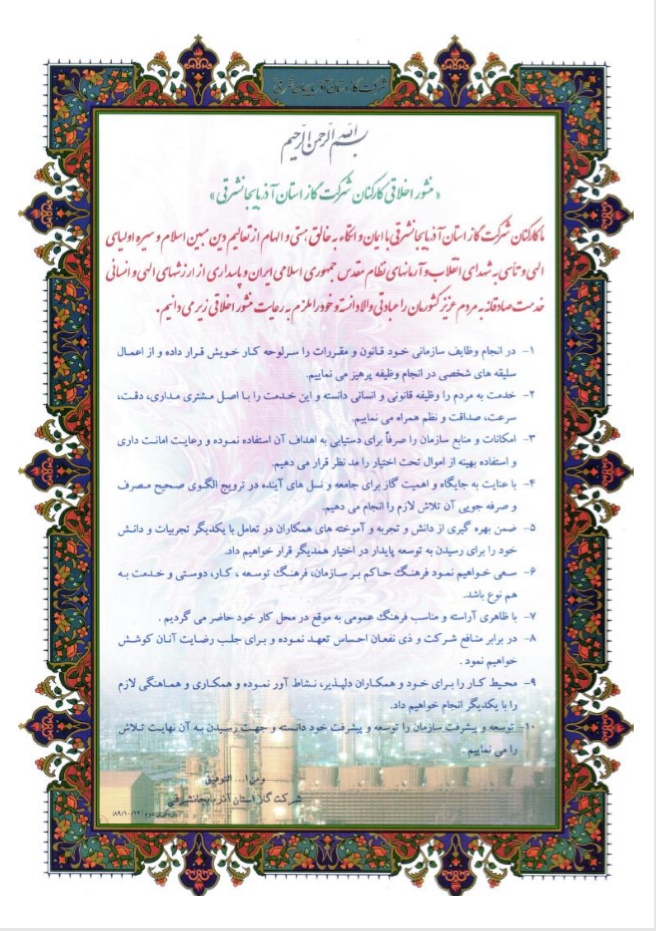 شرکت گاز استان آذربایجان شرقی
بسم الله الرحمن الرحیم
« منشور اخلاقی کارکنان شرکت گاز استان آذربایجانشرقی »
ما کارکنان شرکت گاز استان آذربایجانشرقی با ایمان و اتکاء به خالق هستی و الهام از تعالیم دین مبین اسلام و سیره اولیای
الهی و تأسی به شهدای انقلاب و آرمانهای نظام مقدس جمهوری اسلامی ایران و پاسداری از ارزشهای الهی و انسانی
خدمت صادقانه به مردم عزیز کشورمان را عبادتی والا دانسته و خود را ملزم به رعایت منشور اخلاقی زیر می دانیم .
۱- در انجام وظایف سازمانی خود قانون و مقررات را سرلوحه کار خویش قرار داده و از اعمال
سلیقه های شخصی در انجام وظیفه پرهیز می نماییم.
۲- خدمت به مردم را وظیفه قانونی و انسانی دانسته و این خدمت را با اصل مشتری مداری، دقت،
سرعت، صداقت و نظم همراه می نماییم.
۳- امکانات و منابع سازمان را صرفاً برای دستیابی به اهداف آن استفاده نموده و رعایت امانت داری
و استفاده بهینه از اموال تحت اختیار را مد نظر قرار می دهیم.
۴- با عنایت به جایگاه و اهمیت گاز برای جامعه و نسل های آینده در ترویج الگوی صحیح مصرف
و صرفه جویی آن تلاش لازم را انجام می دهیم.
۵- ضمن بهره گیری از دانش و تجربه و آموخته های همکاران در تعامل با یکدیگر تجربیات و دانش
خود را برای رسیدن به توسعه پایدار در اختیار همدیگر قرار خواهیم داد.
۶- سعی خواهیم نمود فرهنگ حاکم بر سازمان، فرهنگ توسعه ، کار، دوستی و خدمت به
هم نوع باشد.
۷- با ظاهری آراسته و مناسب فرهنگ عمومی به موقع در محل کار خود حاضر می گردیم .
۸- در برابر منافع شرکت و ذی نفعان احساس تعهد نموده و برای جلب رضایت آنان کوشش
خواهیم نمود .
۹- محیط کار را برای خود و همکاران دلپذیر، نشاط آور نموده و همکاری و هماهنگی لازم
را با یکدیگر انجام خواهیم داد.
۱۰- توسعه و پیشرفت سازمان را توسعه و پیشرفت خود دانسته و جهت رسیدن به آن نهایت تلاش
را می نماییم .
و من ا... التوفیق
شرکت گاز استان آذربایجانشرقی